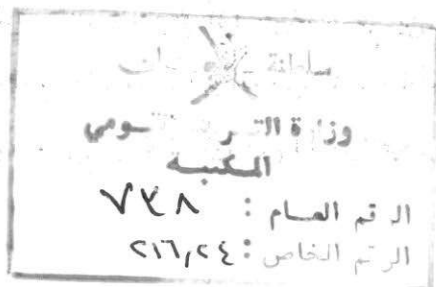 سلطنة عمان
وزارة التراث القومي
المكتبة
الرقم العام : ٧٣٨
الرقم الخاص : ٢١٦,٢٤